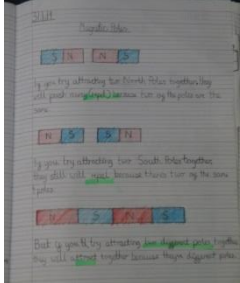 Magnetic Poles
S N N S
If you try attracting two North Poles together, they
will push away (repel) because two of the poles are the
same.
N S S N
If you try attracting two South Poles together,
they still will repel because there's two of the same
poles.
N S N S
But if you try attracting two different poles together
they will attract together because they're different poles.